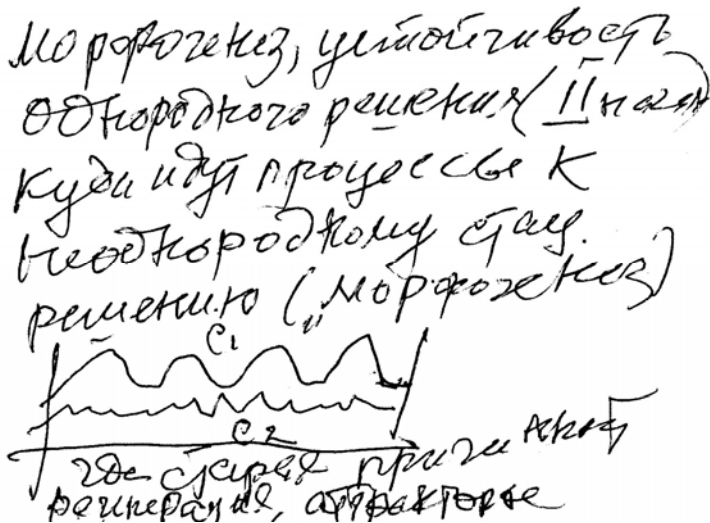 Морфогенез, устойчивость
однородного решения (II начало)
куда идут процессы к
неоднородному стац.
решению („Морфогенез)
C1
C2
где старая причи
регенерация, аттракторы